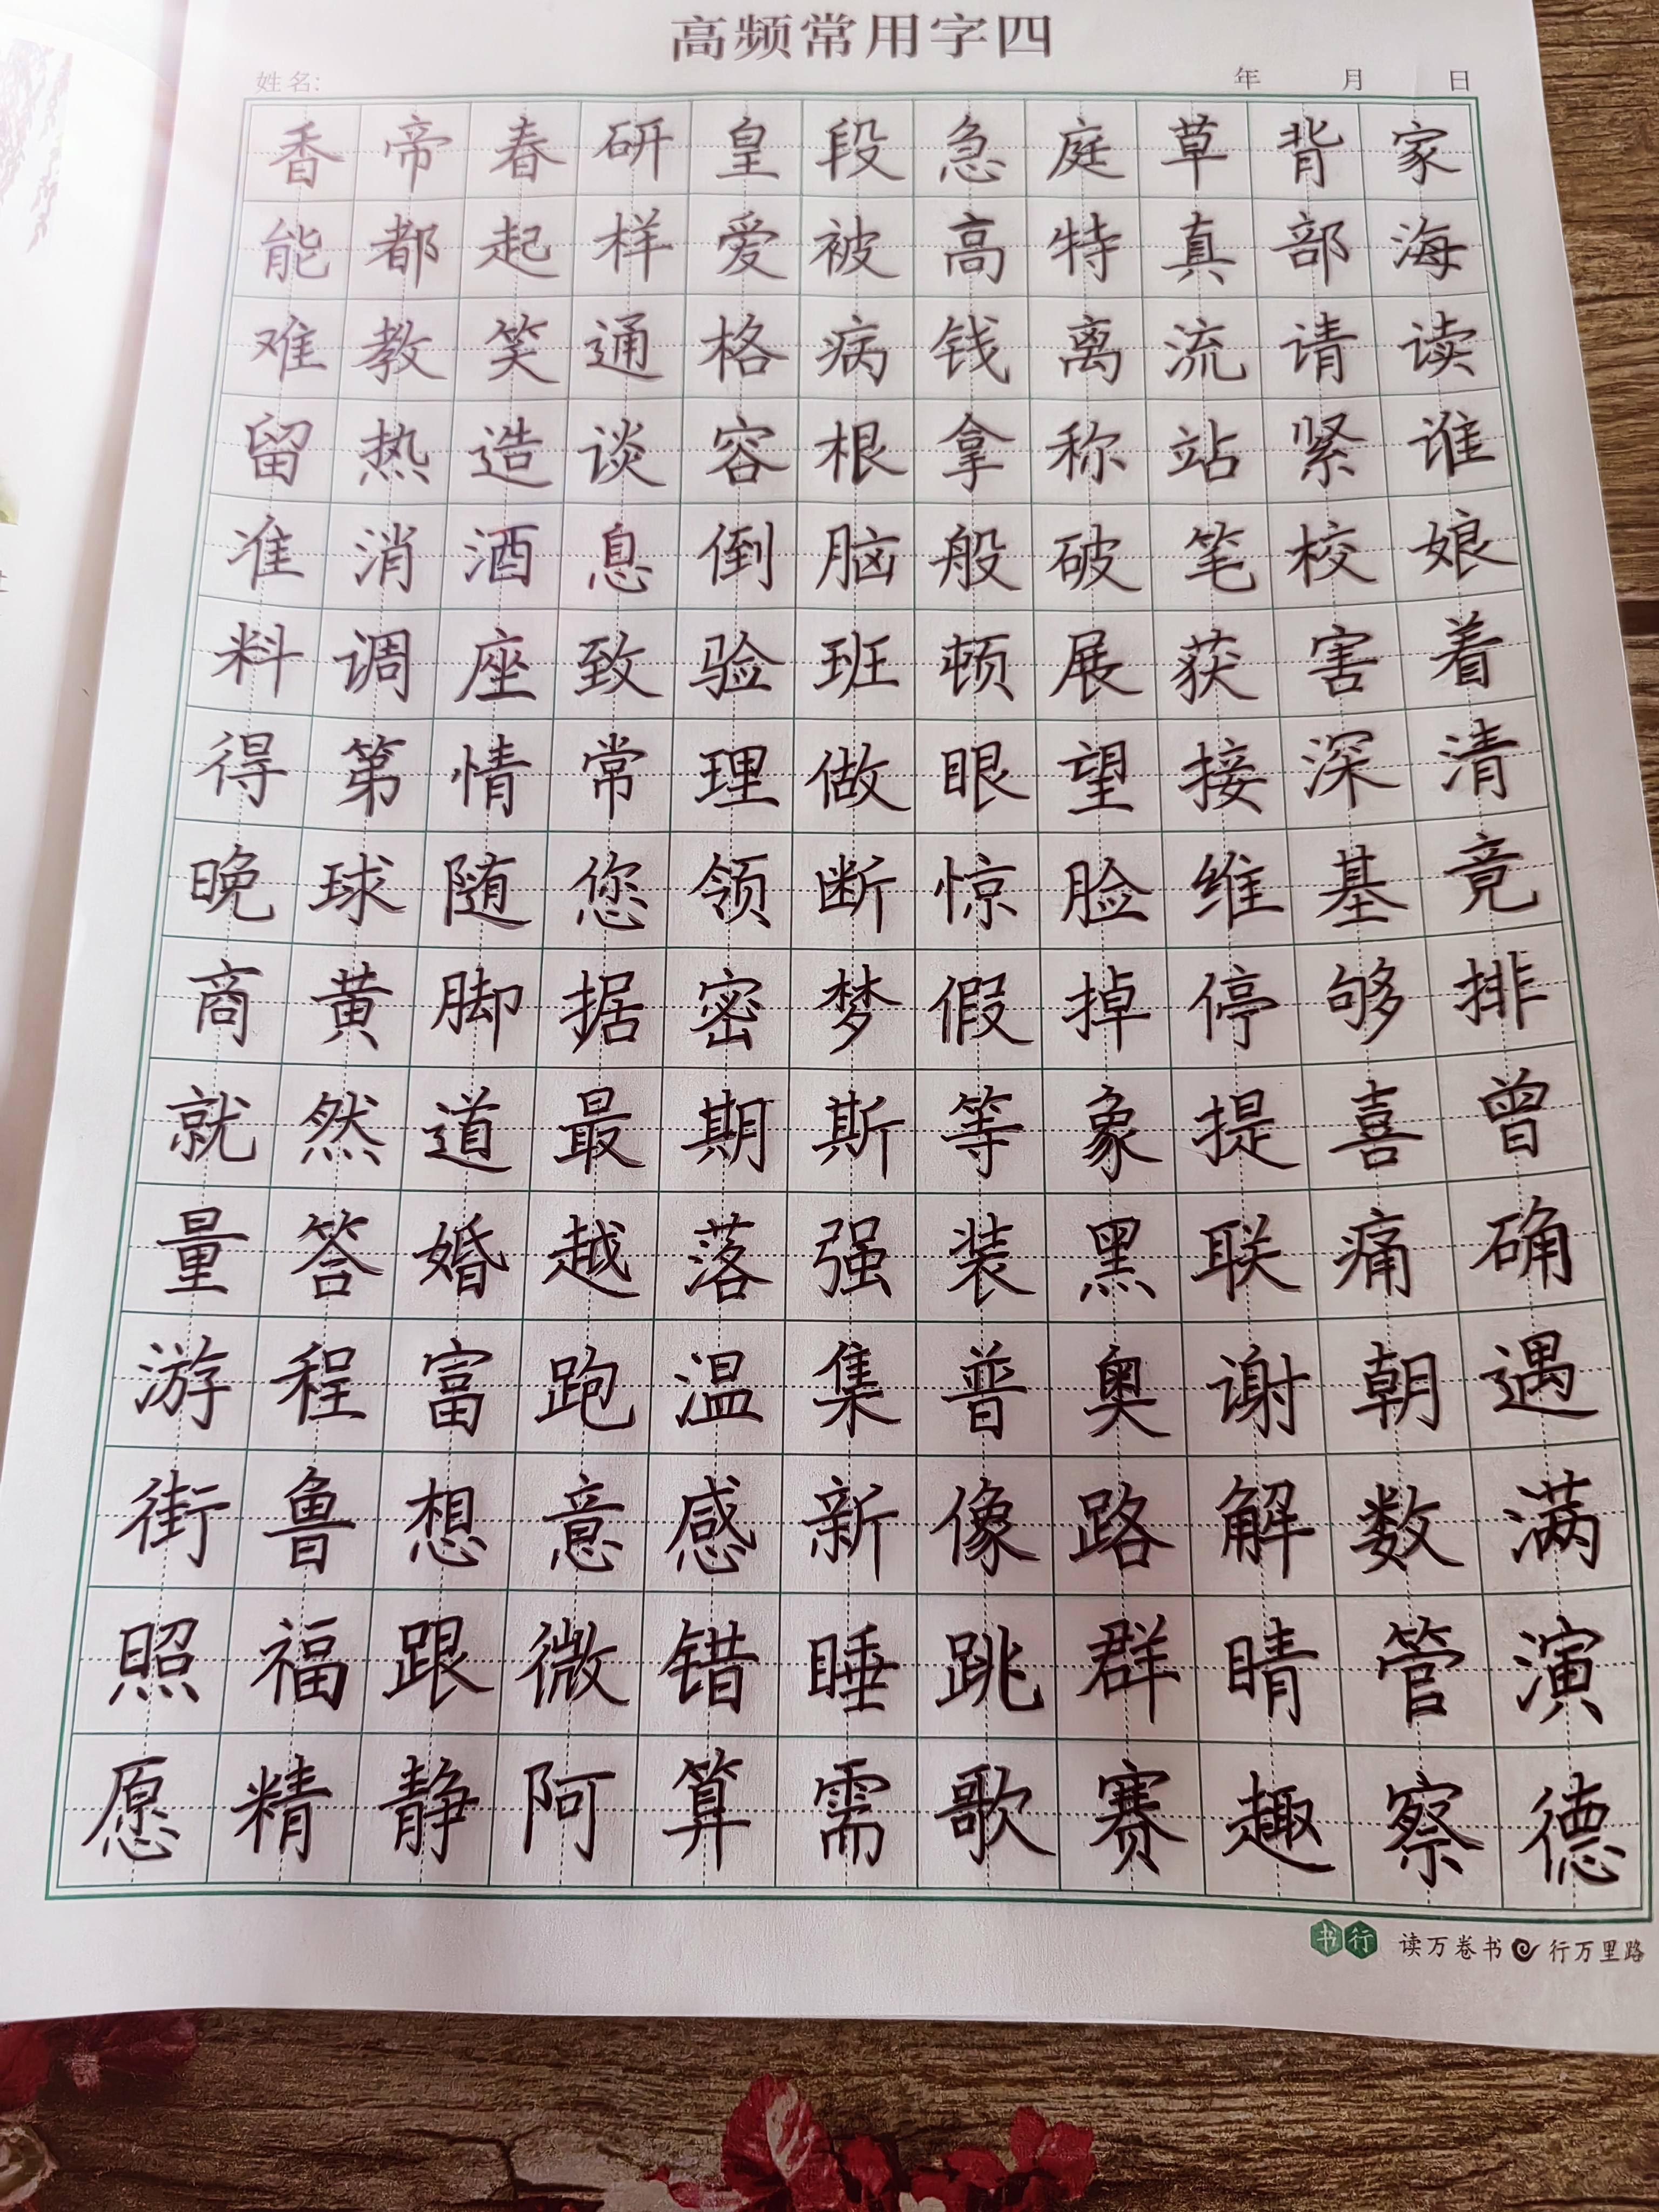 高频常用字四
姓名: 年 月 日
香帝春研皇段急庭草背家
能都起样爱被高特真部海
难教笑通格病钱离流请读
留热造谈容根拿称站紧谁
准消酒息倒脑般破笔校娘
料调座致验班顿展获害着
得第情常理做眼望接深清
晚球随您领断惊脸维基竟
商黄脚据密梦假掉停够排
就然道最期斯等象提喜曾
量答婚越落强装黑联痛确
游程富跑温集普奥谢朝遇
街鲁想意感新像路解数满
照福跟微错睡跳群睛管演
愿精静阿算需歌赛趣察德
书行 读万卷书 行万里路